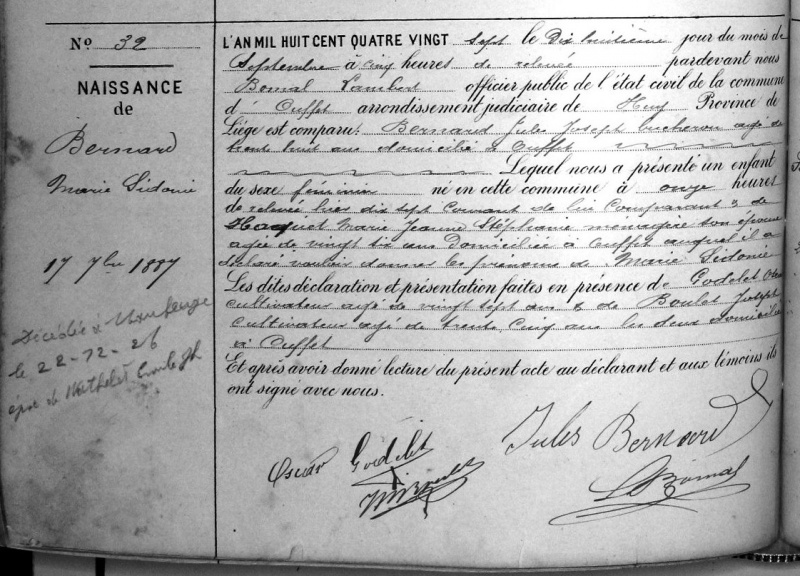 No 32
NAISSANCE
de
Bernard
Marie Sidonie
17 7bre 1887
Décédée à
le 22-12-26
épse de Mathelet
L'AN MIL HUIT CENT QUATRE VINGT sept le Dix huitième jour du mois de
Septembre à cinq heures de relevée pardevant nous
Bomal Lambert officier public de l'état civil de la commune
d' Ouffet arrondissement judiciaire de Huy Province de
Liége est comparu: Bernard Jules Joseph bucheron agé de
trente huit ans domicilié à Ouffet
Lequel nous a présenté un enfant
du sexe féminin né en cette commune à onze heures
de relevée hier dix sept courant de lui Comparant & de
Haquet Marie Jeanne Stéphanie ménagère son épouse
agée de vingt six ans Domiciliée à Ouffet auquel il a
déclaré vouloir donner les prénoms de Marie Sidonie
Les dites déclaration et présentation faites en présence de Godelet
cultivateur agé de vingt sept ans & de Boulet Joseph
cultivateur agé de trente cinq ans les deux domiciliés
à Ouffet
Et après avoir donné lecture du présent acte au déclarant et aux témoins ils
ont signé avec nous.
Jules Bernard
Oscar Godelet
L Bomal